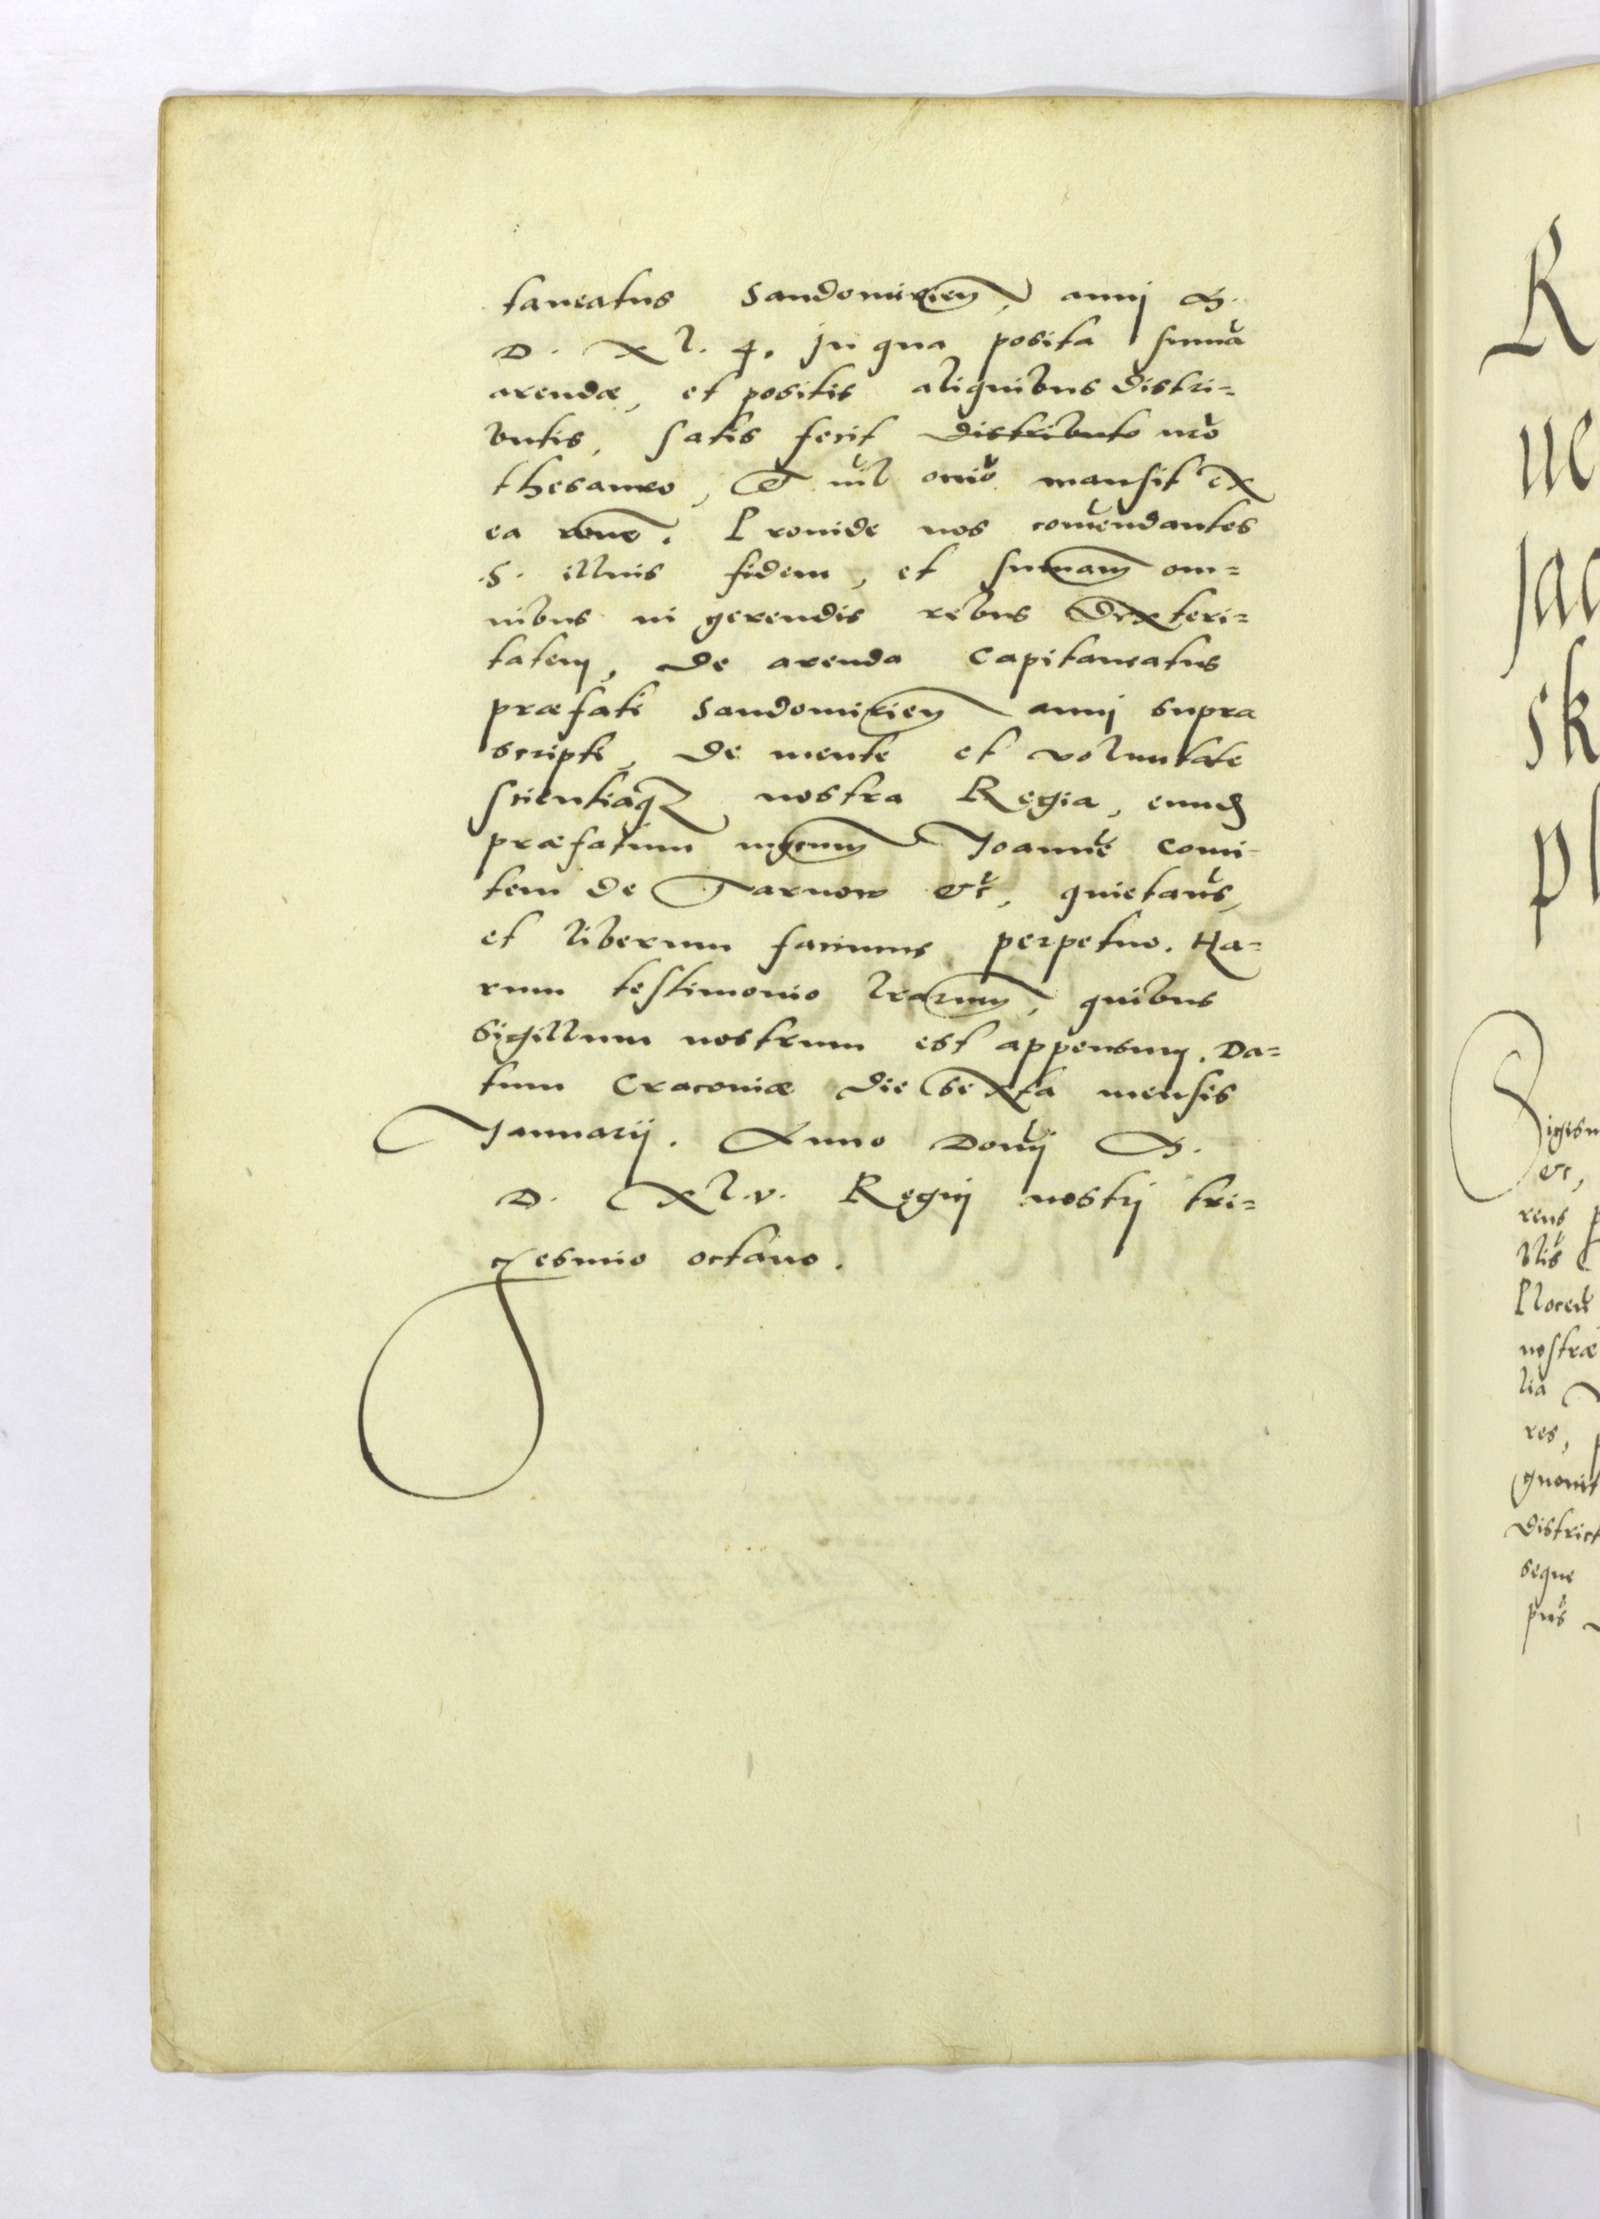 taneatus Sandomirien̄, annj M.
D. Xl. 4. In qua posita sum̄a
arendæ, et positis aliquibus distri=
butis, satis fecit distributo nr̄o
thesauro, Et nil om̄o mansit ex
ea ron̄e. Proinde nos com̄endantes
S. illius fidem, et sum̄am om=
nibus in gerendis rebus dexteri=
tatem, de arenda Capitaneatus
præfati Sandomirien̄ annj supra
scripti, de mente et voluntate
scientiaq₃ nostra Regia, eund̄
præfatum mgcum̄ Joannē Comi=
tem de Tarnow &c̄, quietam̄s,
et liberum facimus perpetuo. Ha=
rum testimonio lr̄arum, quibus
Sigillum nostrum est appensum. Da=
tum Cracoviæ die sexta mensis
Januarij. Anno Dom̄j M.
D. Xl.v. Regnj nostrj tri=
cesimo octavo.
R
ne
jac
sk
pl
Sigism
&c,
rens
blis
Plocen̄
nostræ
lia
res,
quonit
district
seque
pns̄